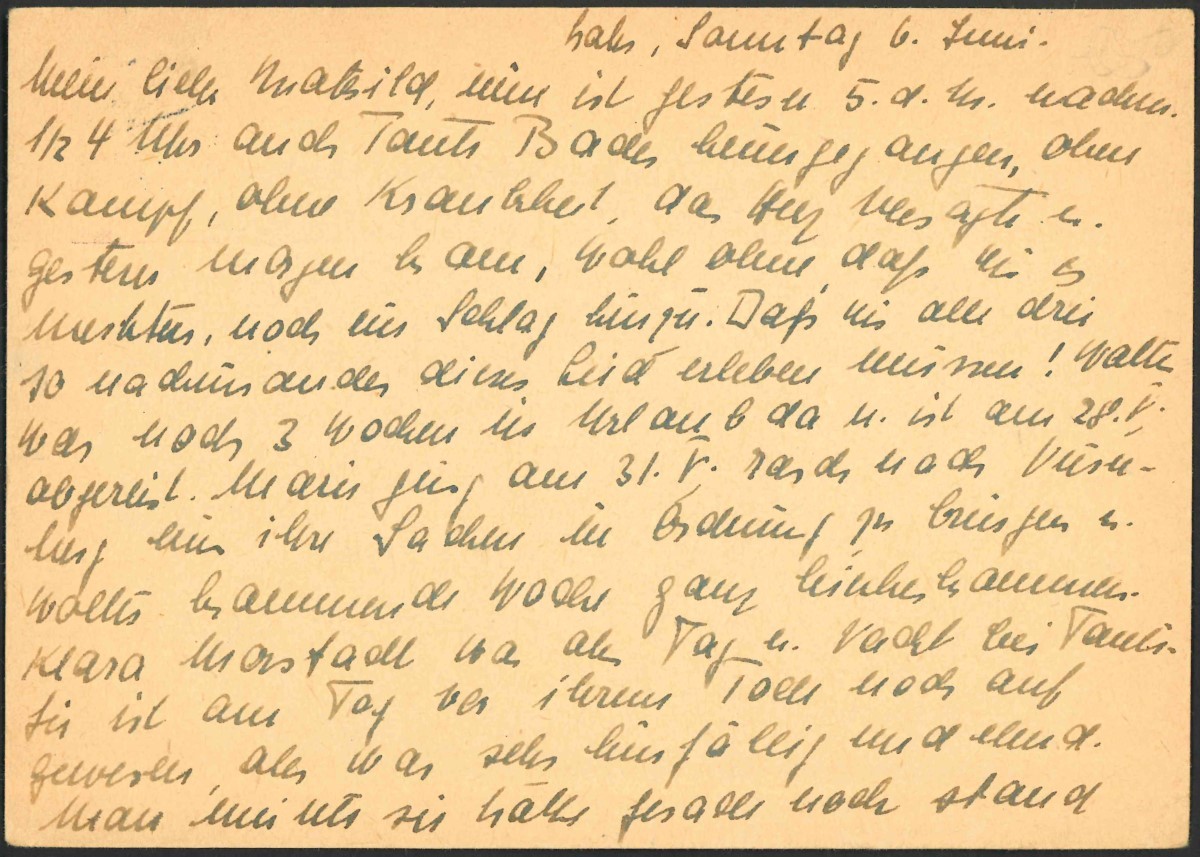 Lahr, Sonntag 6. Juni.
Meine liebe Mathild, nun ist gestern 5. d. M. nachm.
1/2 4 Uhr auch Tante Bader heimgegangen, ohne
Kampf, ohne Krankheit, das Herz versagte u.
gestern morgen kam, wohl ohne daß wir es
merkten, noch ein Schlag hinzu. Daß wir alle drei
so nacheinander dieses Leid erleben müssen! Walter
war noch 3 Wochen in Urlaub da u. ist am 28. V.
abgereist. Marie ging am 31. V. rasch nach Nürn-
berg um ihre Sachen in Ordnung zu bringen u.
wollte kommende Woche ganz hierherkommen.
Klara Morstadt war aber Tag u. Nacht bei Tante.
Sie ist am Tag vor ihrem Tode noch auf
gewesen, aber war sehr hinfällig und elend.
Man meinte sie hätte gerade noch stand